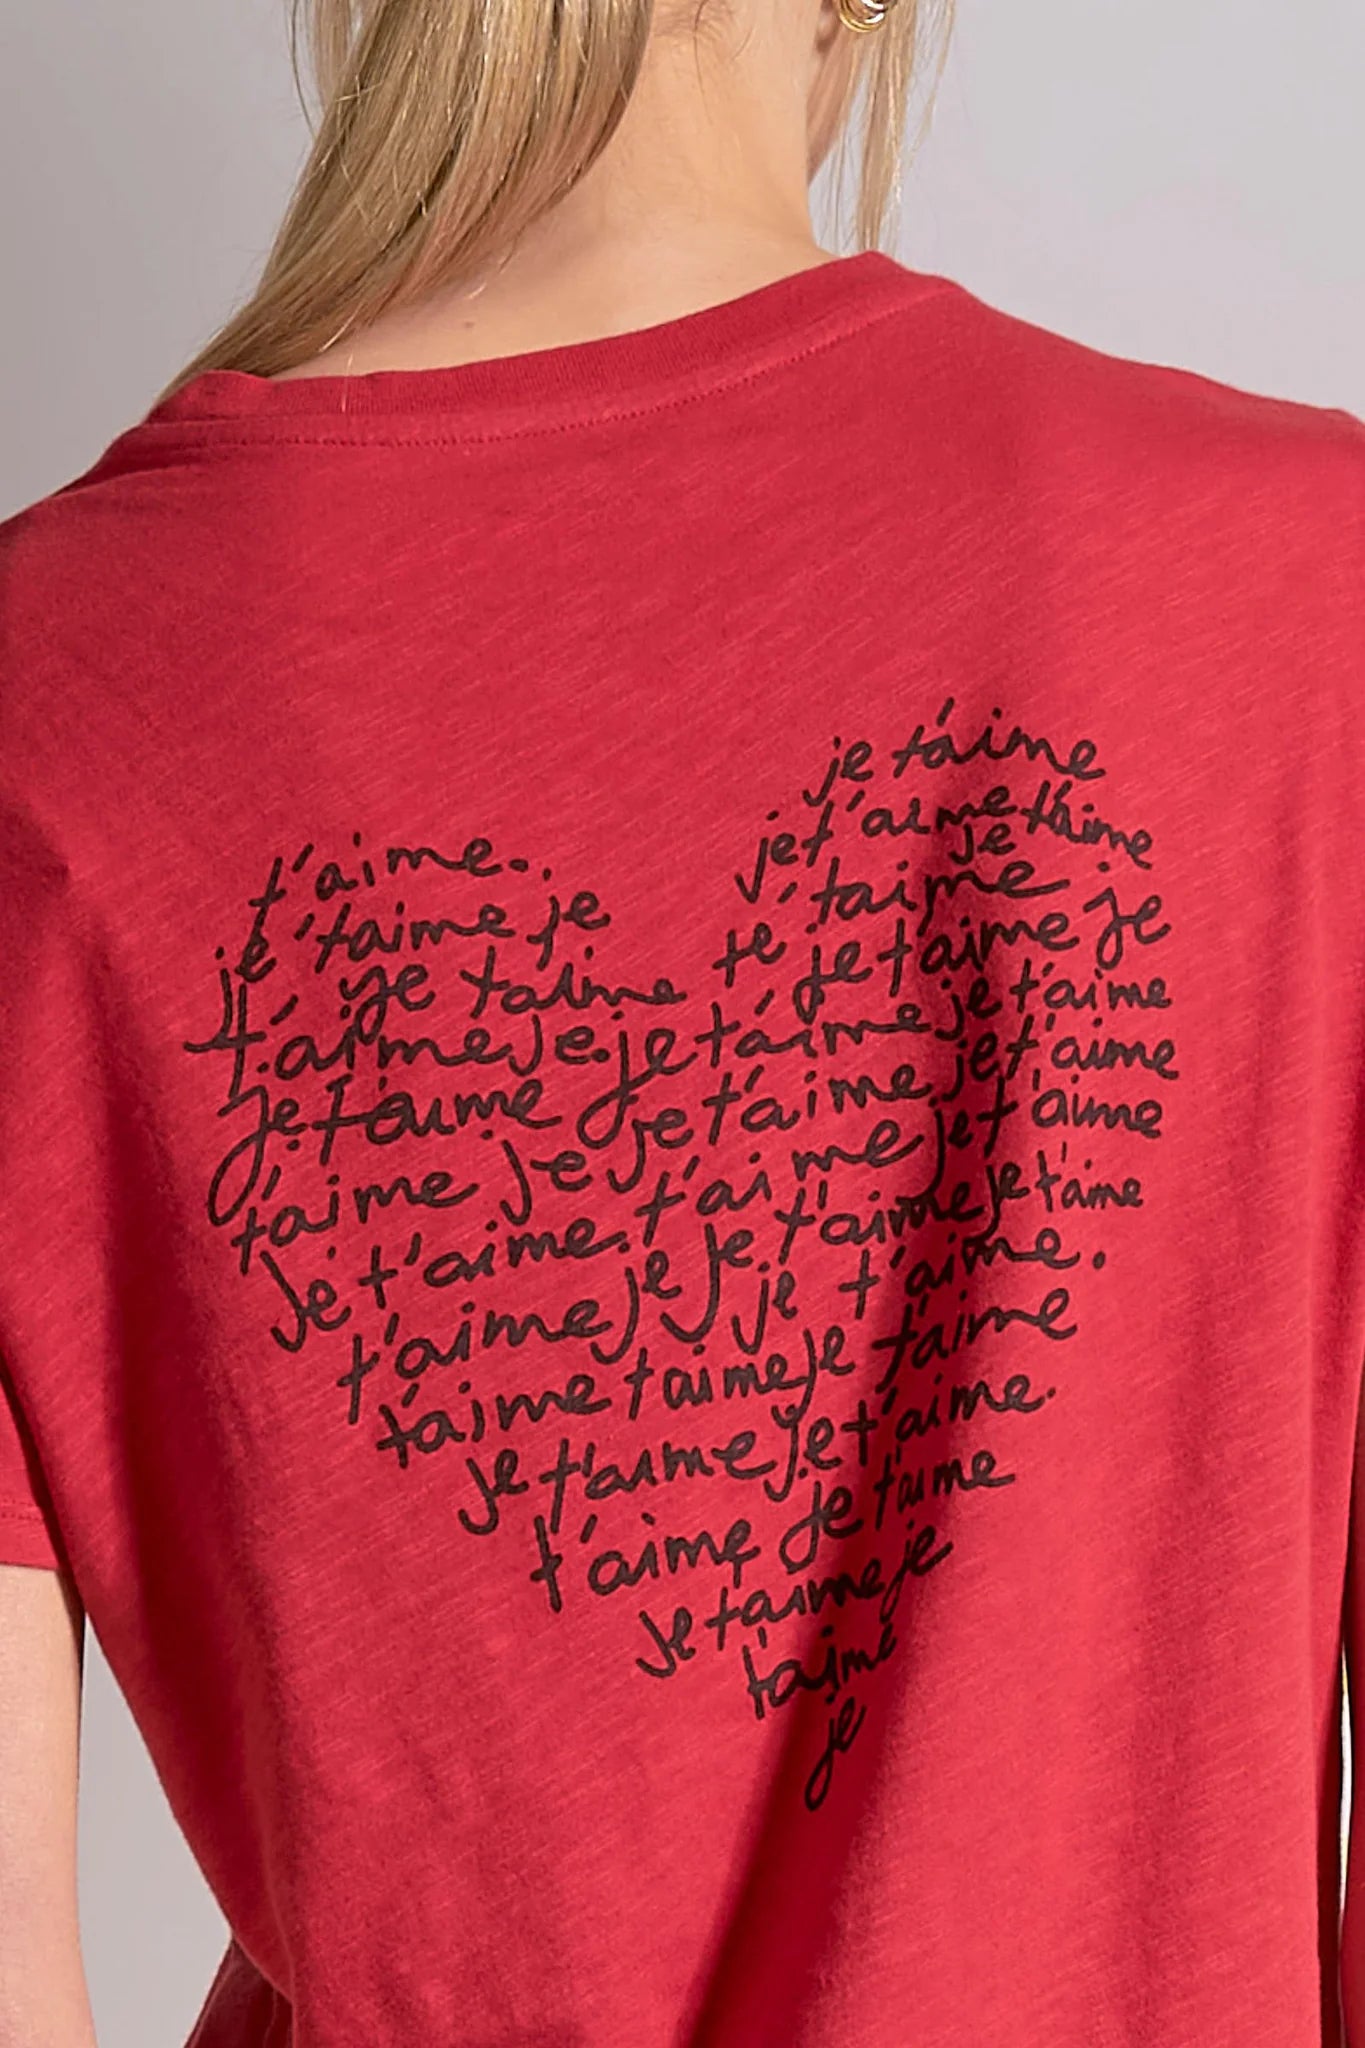 je t'aime
t'aime..
je t'aime je t'aime
je t'aime je
te' taime
je
je taime
je t'aime je
t'aime je.je t'aime je t'aime
je t'aime je t'aime je t'aime
t'aime je t'aime je t'aime
je t'aime. je t'aime je t'aime
t'aime je je je t'aime.
t'aime t'aime je t'aime
je t'aime je t'aime.
t'aime je t'aime
je t'aime je
t'aime
je